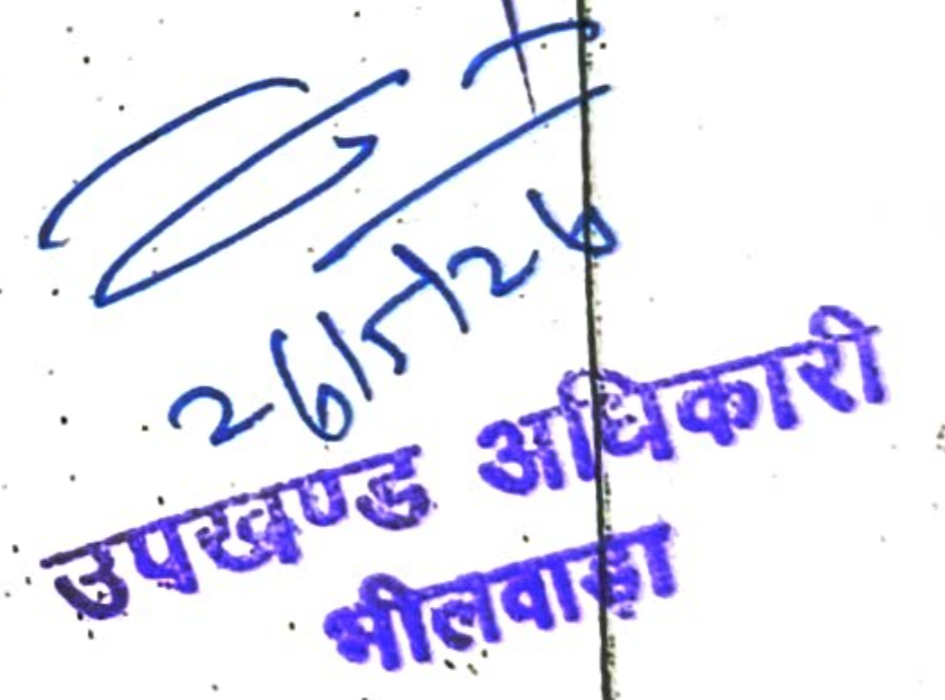 26/5/26
उपखण्ड अधिकारी
भीलवाड़ा